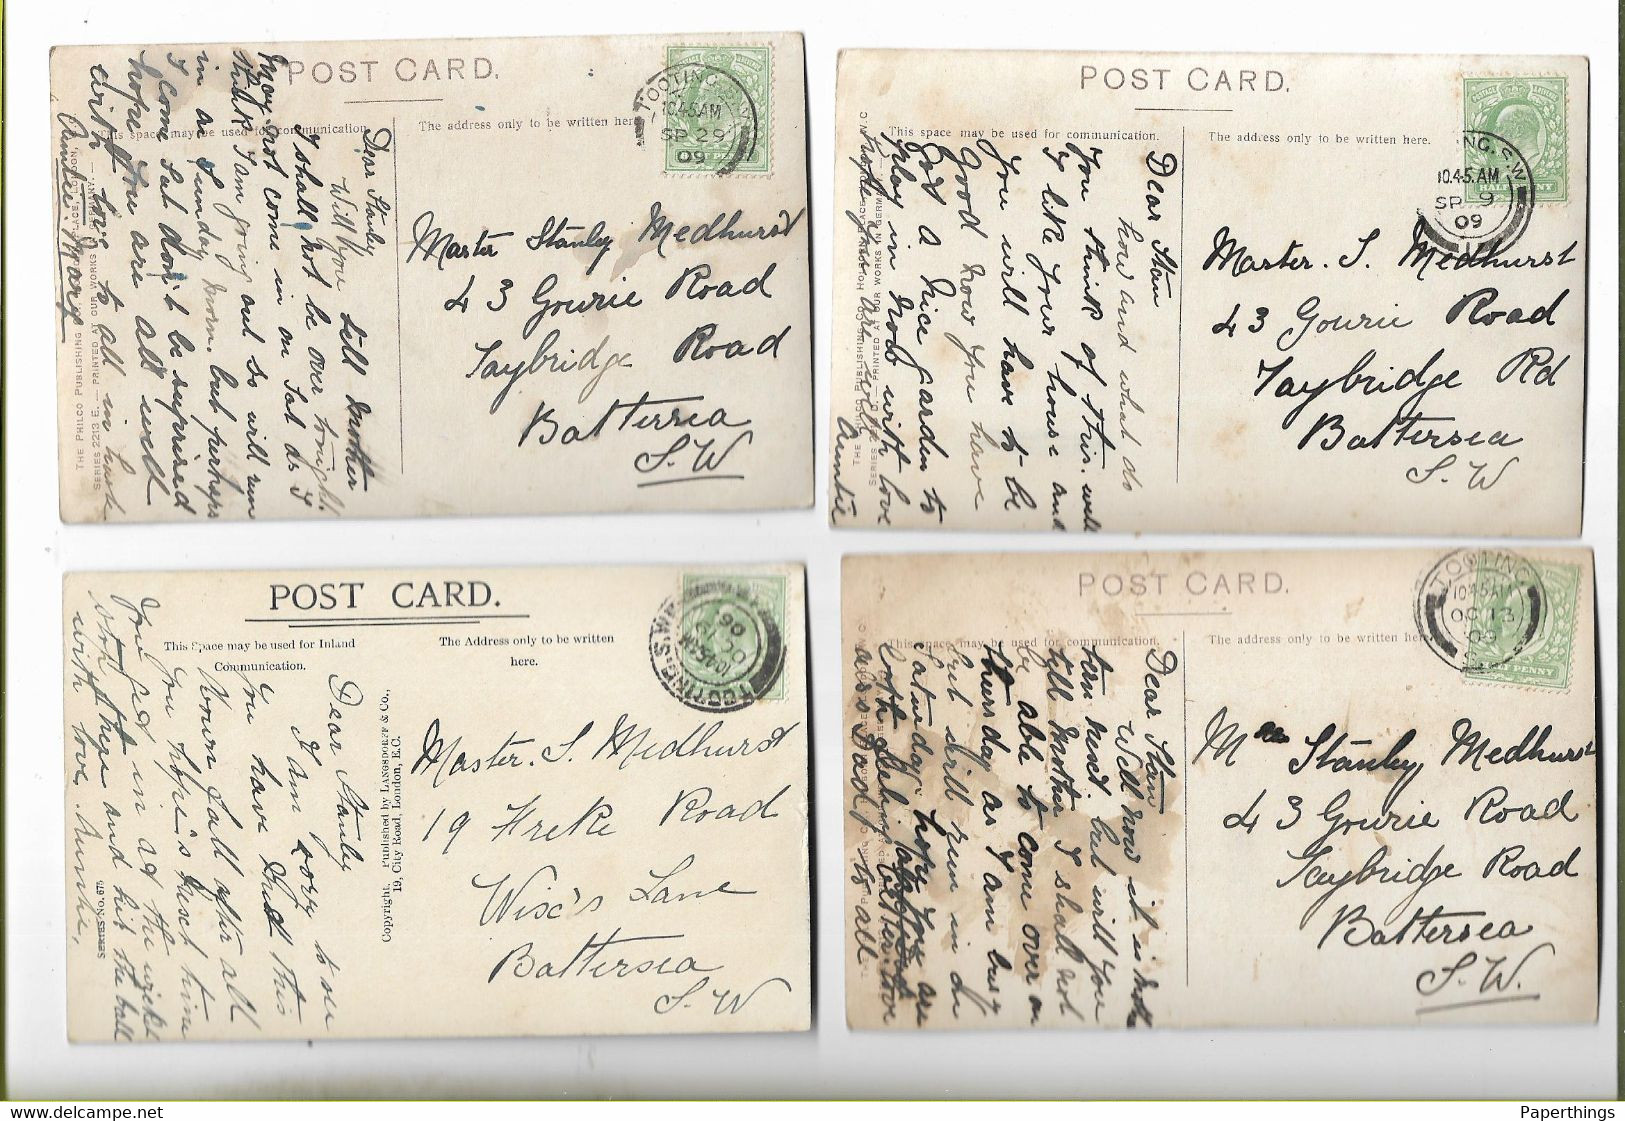 POST CARD.
This space may be used for communication.
The address only to be written here.
TOOTING. S.W
10.45.AM
SP 29
09
Dear Stanley
Will you tell Mother
I shall not be over tonight.
May not come in on Sat as I
think I am going out so will run
in on Sunday morn. but perhaps
I come Sat don't be surprised
hope you are all well
with love to all in haste
Auntie. Mary
THE PHILCO PUBLISHING
PLACE, LONDON,
SERIES 2213 E. — PRINTED AT OUR WORKS IN GERMANY.
Master Stanley Medhurst
43 Gourie Road
Taybridge Road
Battersea
S.W
POST CARD.
This space may be used for communication.
The address only to be written here.
NG. S.W
10.45.AM
SP 9
09
Dear Stan
how and what do
you think of this. well
I like your house and
you will have to be
Good now you have
Got a nice garden to
play in with love
Auntie
PRINTED AT OUR WORKS IN GERM
Master. S. Medhurst
43 Gourie Road
Taybridge Rd
Battersea
S.W
POST CARD.
This Space may be used for Inland
Communication.
The Address only to be written
here.
TOOTING. S.W.
10.45AM
OC
06
Dear Stanley
I am sorry to see
you have had this
down fall after all
you hope's next time
you get in at the wicket
stop there and hit the ball
with love. Auntie,
Copyright. Published by LANGSDORFF & Co.,
19, City Road, London, E.C.
SERIES No. 675
Master. S. Medhurst
19 Freke Road
Wise's Lane
Battersea
S.W
POST CARD.
This space may be used for communication.
The address only to be written here.
TOOTING
10.45AM
OC 13
09
HALF PENNY
Dear Stan
Well now it is Mothers
turn next but will you
tell Mother I shall not
be able to come over on
thursday as I am busy
but will run in on
Saturday hope you are
both feeling better. love
as is Dad to all
Stanley Medhurst
43 Gourie Road
Taybridge Road
Battersea
S.W.
Paperthings